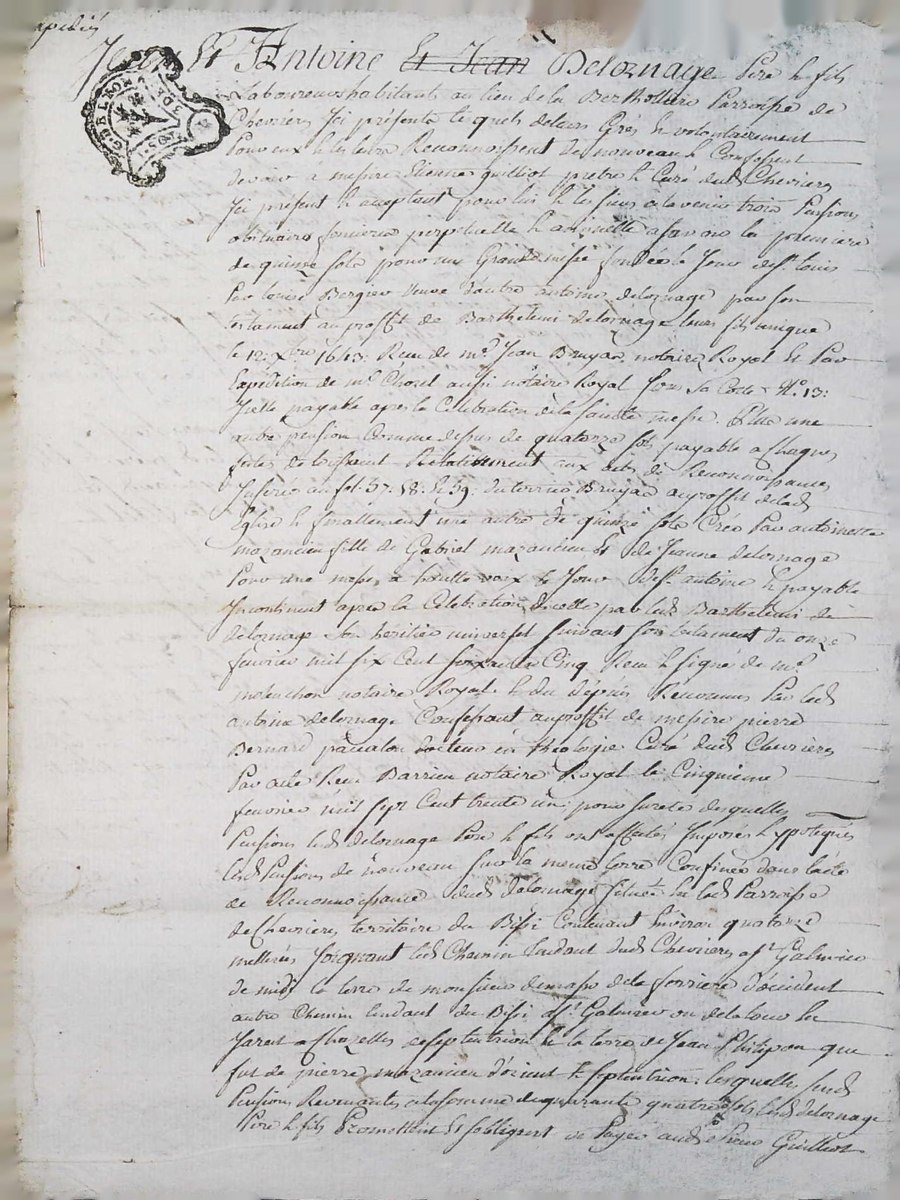 expediés
Jean & Antoine et Jean Delornage Pere & fils
Laboureurs habitants au lieu de la Bertholliere Parroisse de
Cheuriers Ici présents lesquels de leurs Grés & volontairement
Pour eux & les leurs Reconnoissent de nouveau & Confessent
devoir a messire Etienne guilliot pretre & Curé dud Cheuriers
Ici present & acceptant pour lui & les siens a lavenir trois Pensions
obituaires foncieres perpetuelle & annuelle a savoir la premiere
de quinze sols pour une Grande messe fondée le Jour de st Louis
Par Louise Bergier veuve d'autre antoine delornage par son
testament au proffit de Barthelemi delornage leur fils unique
le 12: Xbre 1643: Recu de me Jean Bruyas notaire Royal & Par
Expedition de me Chorel aussi notaire Royal sous sa Cotte No. 13:
Icelle payable apres la Celebration de la sainte messe. Plus une
autre pension Comme dessus de quatorze sols payable a chaques
festes de Relativement aux actes de Reconnoissances
Inserés au fol. 37. 58. & 59. du terrier Bruyas au proffit de lad
Eglise & finallement une autre de quinze sols Créé Par antoinette
mazancieu fille de Gabriel mazancieu & de Jeanne delornage
Pour une messe a hautte voix le Jour de st antoine & payable
Incontinent apres la Celebration dicelle par led Barthelemi de
delornage son héritier universel suivant son testament du onze
feurier mil six Cent soixante Cinq Recu & signé de me
notaire Royal & du depuis Reconnues Par led
antoine delornage Confessant au proffit de messire pierre
Bernard docteur en theologie Curé dud Cheuriers
Par acte Recu Barrieu notaire Royal le Cinquieme
feurier mil sept Cent trente un: pour sureté desquelles
Pensions lesd delornage Pere & fils ont affectés Imposés & ypotequés
lesd Pensions de nouveau sur la meme terre Confinée dans lacte
de Reconnoissance dud delornage située en lad Parroisse
de Cheuriers territoire du Bissi Contenant Environ quatorze
metterés Joignant led Chemin tendant dud Cheuriers a st Galmier
de midi la terre de monsieur de la ferriere d'occident
autre Chemin tendant du Bissi a st Galmier ou de la tour en
Jarest a Chazelles de septentrion & la terre de Jean Philipon que
fut de pierre mazancieu d'orient & septentrion. lesquelles susd
Pensions Revenantes a la somme de quarante quatre sols lesd delornage
Pere & fils Promettent & s'obligent de Payer aud sieur Guilliot